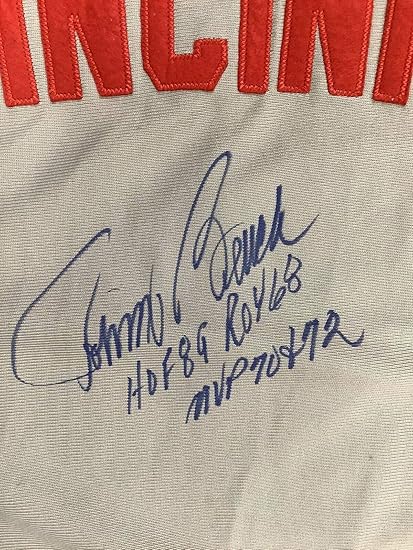 INCINN
Johnny Bench
HOF 89 ROY 68
MVP 70 & 72